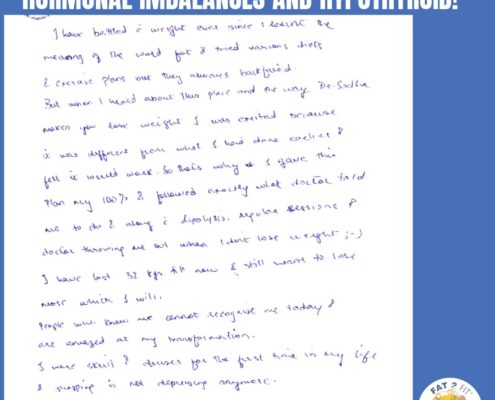 HORMONAL IMBALANCES AND HYPOTHYROID!
I have battled c̄ weight ever since I learnt the
meaning of the word fat & tried various diets
& exercise plans but they always backfired.
But when I heard about this place and the way Dr. Sadhna
makes you lose weight I was excited because
it was different from what I had done earlier &
felt it would work. So thats why I gave this
plan my 100% & followed exactly what doctor told
me to do & along c̄ lipolysis, regular sessions &
doctor throwing me out when I dont lose weight ;-)
I have lost 32 kgs till now & still want to lose
more which I will.
People who knew me cannot recognise me today &
are amazed at my transformation.
I wore skirt & dresses for the first time in my life
& shopping is not depressing anymore.
FAT 2 FIT